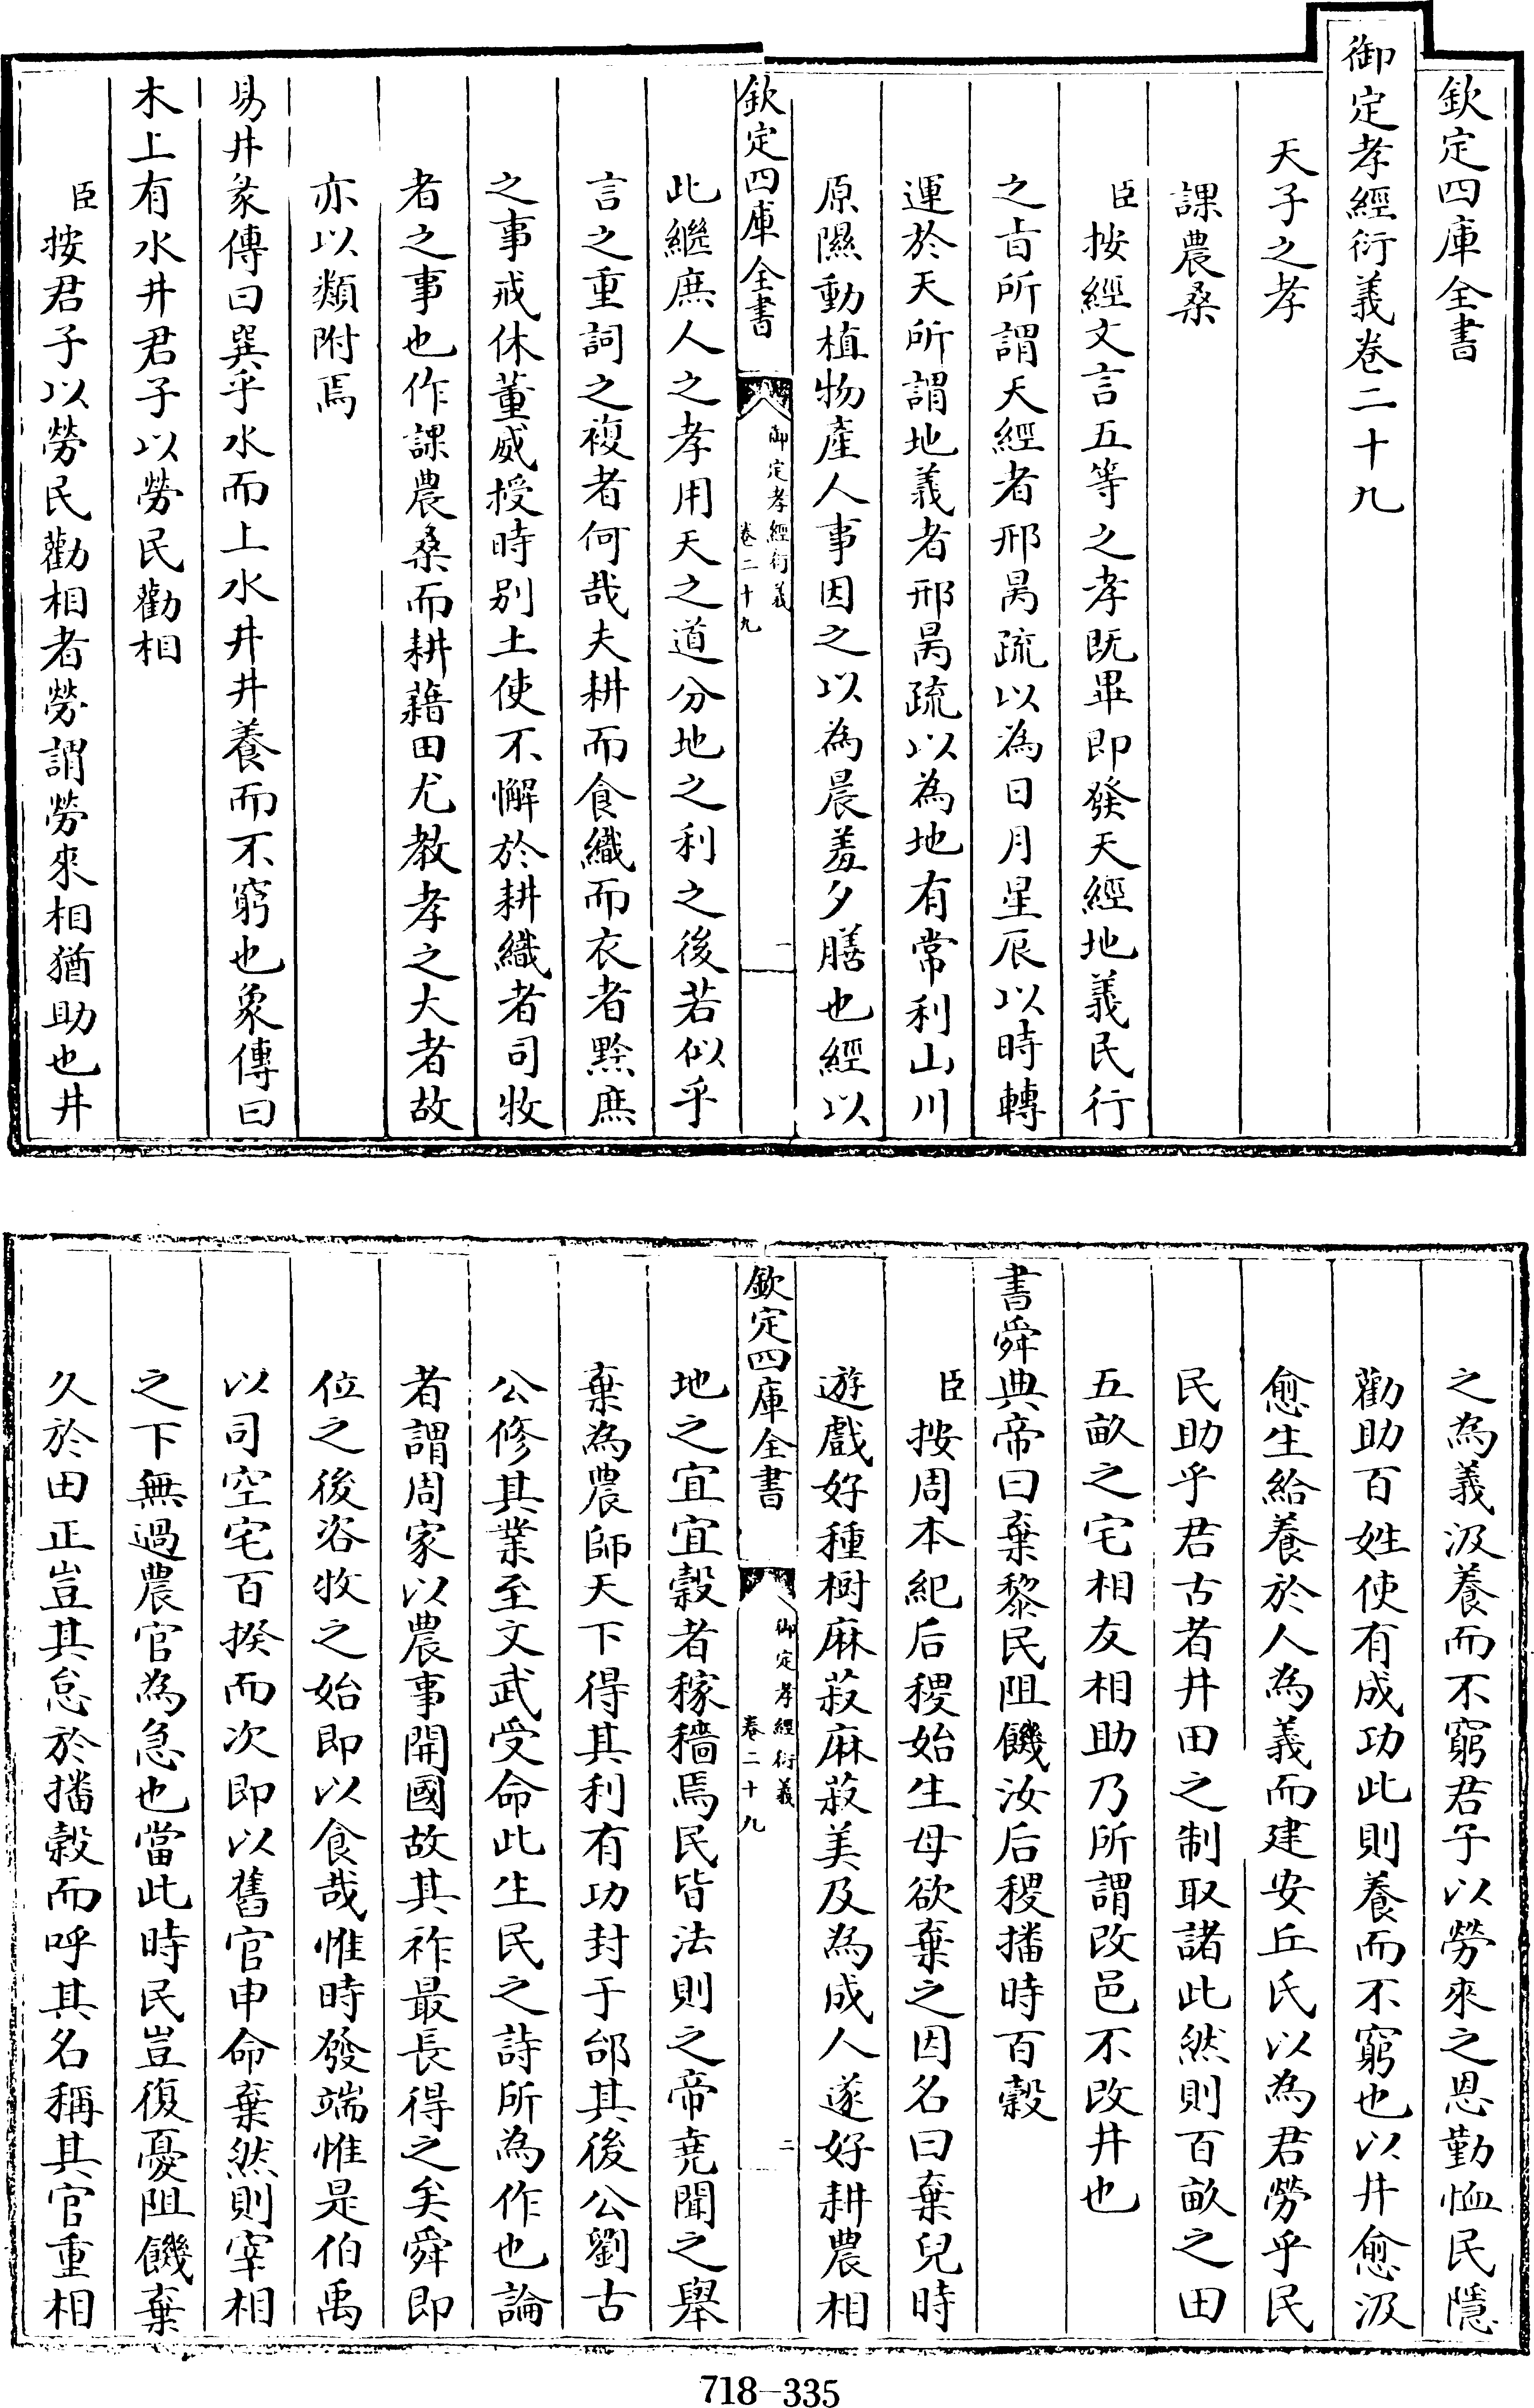 欽定四庫全書
御定孝經衍義卷二十九
天子之孝
課農桑
臣按經文言五等之孝既畢即發天經地義民行
之㫖所謂天經者邢昺疏以為日月星辰以時轉
運於天所謂地義者邢昺疏以為地有常利山川
原隰動植物產人事因之以為晨羞夕膳也經以
欽定四庫全書
御定孝經衍義
卷二十九
一
此繼庶人之孝用天之道分地之利之後若似乎
言之重詞之複者何哉夫耕而食織而衣者黔庶
之事戒休董威授時别土使不懈於耕織者司牧
者之事也作課農桑而耕藉田尤教孝之大者故
亦以類附焉
易井彖傳曰巽乎水而上水井井養而不窮也象傳曰
木上有水井君子以勞民勸相
臣按君子以勞民勸相者勞謂勞來相猶助也井
之為義汲養而不窮君子以勞來之恩勤恤民隱
勸助百姓使有成功此則養而不窮也以井愈汲
愈生給養於人為義而建安丘氏以為君勞乎民
民助乎君古者井田之制取諸此然則百畝之田
五畝之宅相友相助乃所謂改邑不改井也
書舜典帝曰棄黎民阻饑汝后稷播時百穀
臣按周本紀后稷始生母欲棄之因名曰棄兒時
遊戲好種樹麻菽麻菽美及為成人遂好耕農相
欽定四庫全書
御定孝經衍義
卷二十九
二
地之宜宜穀者稼穡焉民皆法則之帝堯聞之舉
棄為農師天下得其利有功封于邰其後公劉古
公修其業至文武受命此生民之詩所為作也論
者謂周家以農事開國故其祚最長得之矣舜即
位之後咨牧之始即以食哉惟時發端惟是伯禹
以司空宅百揆而次即以舊官申命棄然則宰相
之下無過農官為急也當此時民豈復憂阻饑棄
久於田正豈其怠於播穀而呼其名稱其官重相
718-335